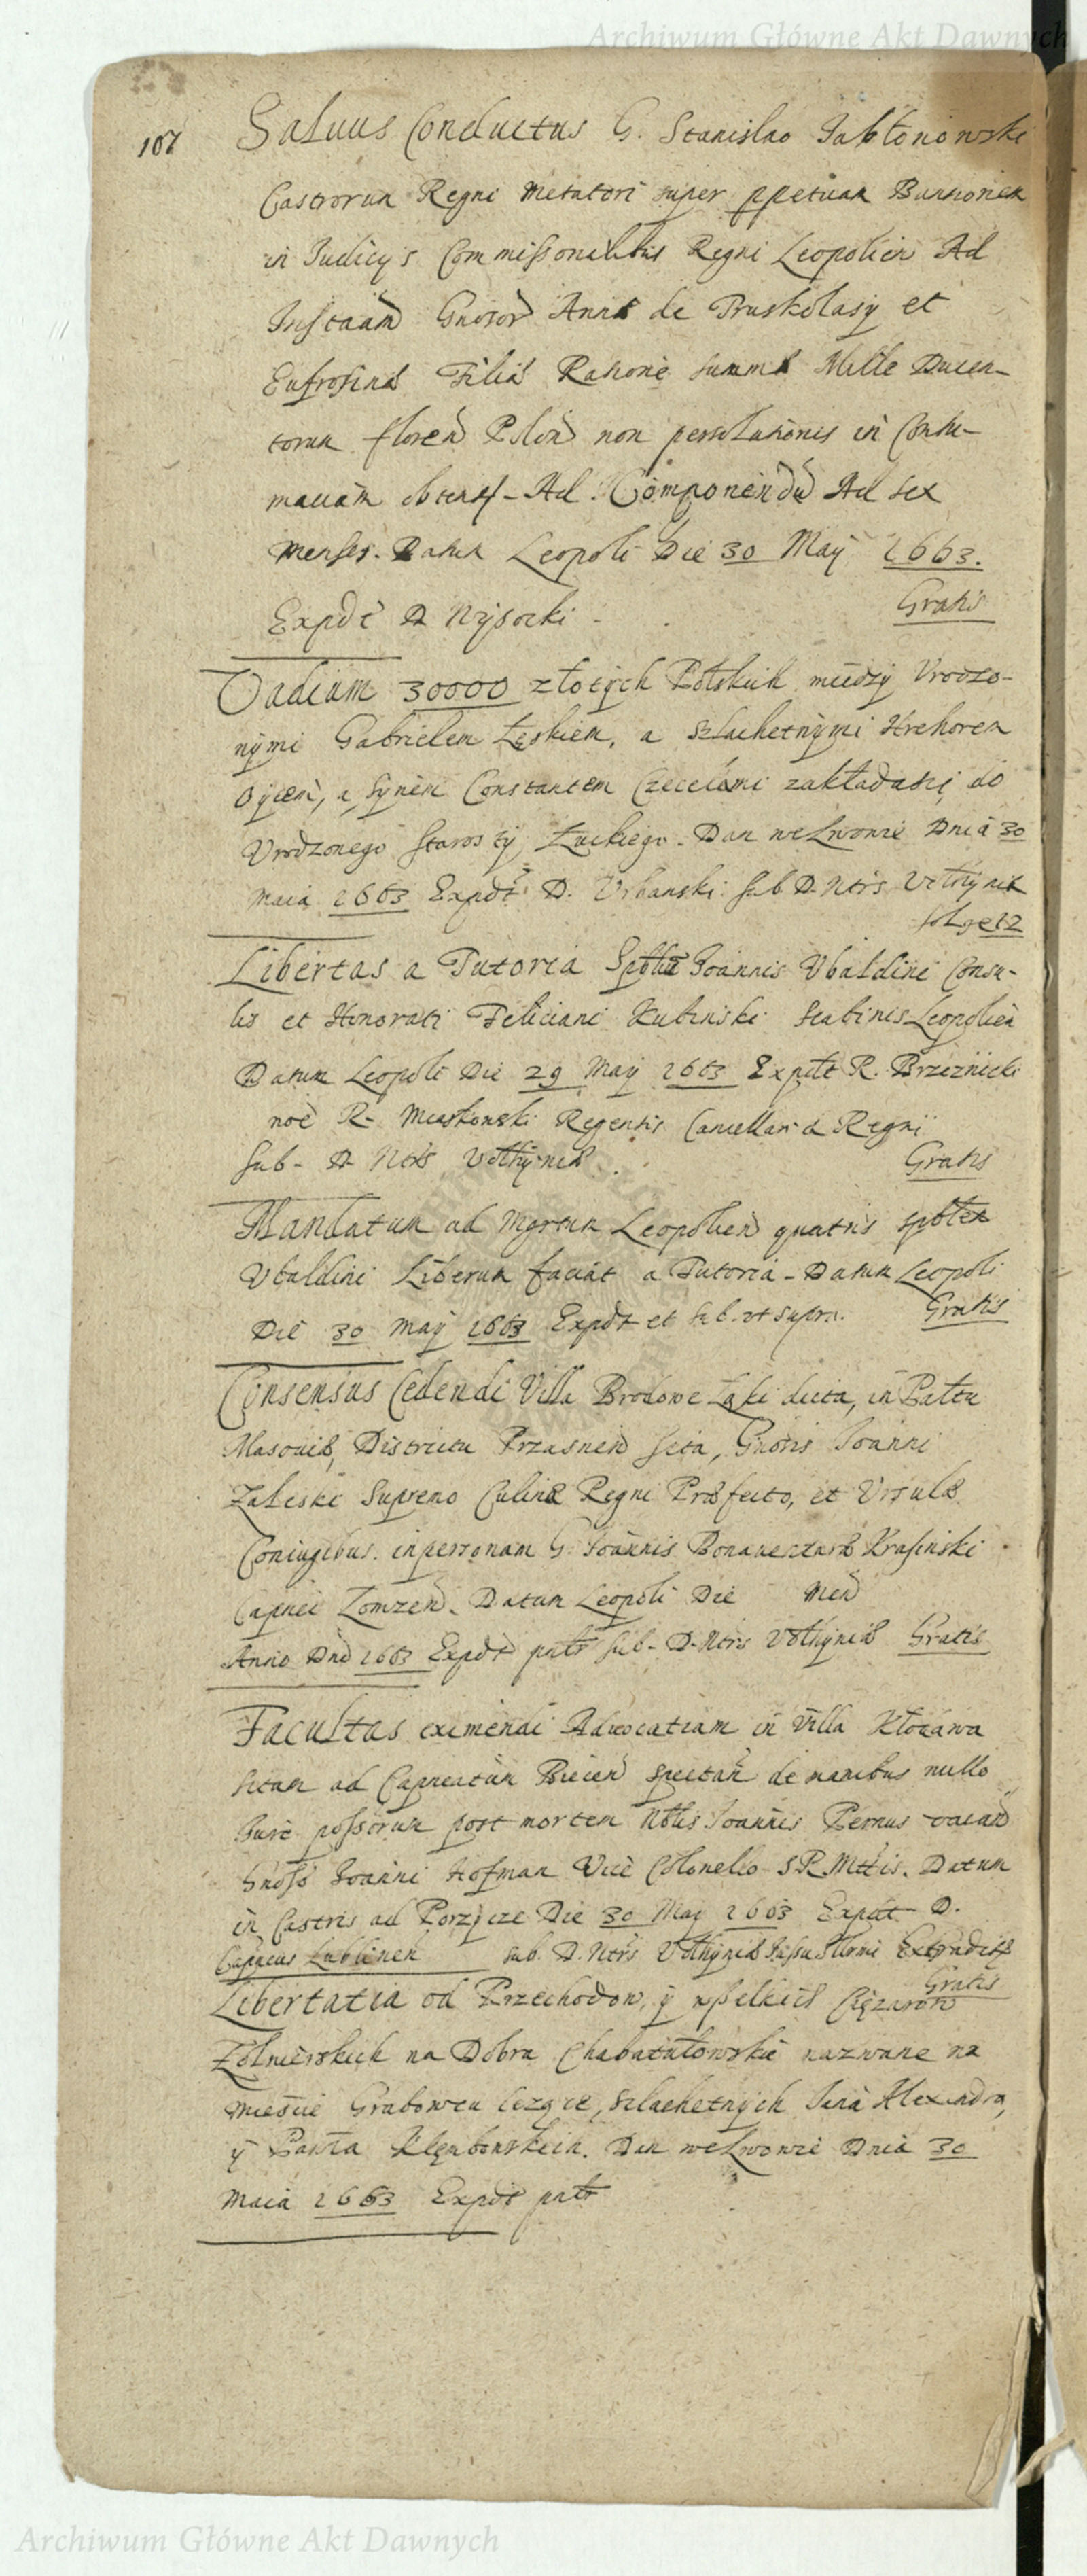 Archiwum Główne Akt Dawnych
107
Saluus Conductus G. Stanislao Jabłonowski
Castrorum Regni Metatori super ppetuam Bannonem
in Iudicijs Commissionalibus Regni Leopolien Ad
Instaām Gnosor Annæ de Pruskolasy et
Eufrosinæ Filiæ Ratione summæ Mille Ducen-
torum floren Polon non persolutionis in Contu-
matiam obtent - Ad Componendū Ad sex
Menses. Datum Leopoli Die 30 Maij 1663.
Gratis
Expdt D Wysocki
Vadium 30000 złotych Polskich między Vrodzo-
nymi Gabrielem Łęskiem, a Szlachetnymi Hrehorem
Oycem, a Synem Constantem zakładaszię do
Vrodzonego Starosty Łuckiego. Dan we Lwowie Dnia 30
Maia 1663 Expdt D. Vrbanski sub D. Ntris Volhyniæ
Libertas a Tutoria Spblis Joannis Vbaldini Consu-
lis et Honorati Feliciani Kubinski Scabinis Leopolien
Datum Leopoli Die 29 Maij 1663 Expdt R. Brzeznicki
noe R. Miaskowski Regentis Cancellariæ Regni
Sub- D Ntris Volhyniæ
Gratis
Mandatum ad Mgrtum Leopolien quatnus spblem
Vbaldini Liberum faciat a Tutoria - Datum Leopoli
Die 30 Maij 1663 Expdt et sub. vt supra.
Gratis
Consensus Cedendi Villa Brodowe Łąki dicta, in Pałtu
Masouiæ, Districtu Przasnen sita, Gnosis Joanni
Zaleski Supremo Culinæ Regni Præfecto, et Vrsulæ
Coniugibus. in personam G. Joannis Bonauenturæ Krasinski
Capnei Lomzen. Datum Leopoli Die Men
Anno Dni 1663 Expdt pnts sub- D. Ntris Volhyniæ Gratis
Facultas eximendi Aduocatiam in Villa Kłodawa
sitam ad Capneatūm Biecen spectan de manibus nullo
Iure possorum post mortem Nobilis Joannis Pernus vacan
Gnoso Joanni Hofman Vice Colonello S R Mttis. Datum
in Castris ad Porzycze Die 30 Maij 1663 Expdt D.
Capneus Lublinen sub. D. Ntris Volhyniæ
Gratis
Libertatia od Przechodow, y wszelkich Cięzarow
Zołnierskich na Dobra nazwane na
Miescie Grabowcu lezące, Szlachetnych Jana Alexandra,
y Pawła. Dan we Lwowie Dnia 30
Maia 1663 Expdt pnts
Archiwum Główne Akt Dawnych